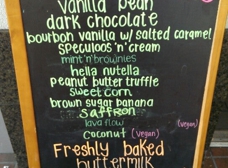 vanilla bean
dark chocolate
bourbon vanilla w/ salted caramel
speculoos 'n' cream
mint 'n' brownies
hella nutella
peanut butter truffle
sweet corn
brown sugar banana
saffron
lava flow (vegan)
coconut (vegan)
Freshly baked
buttermilk